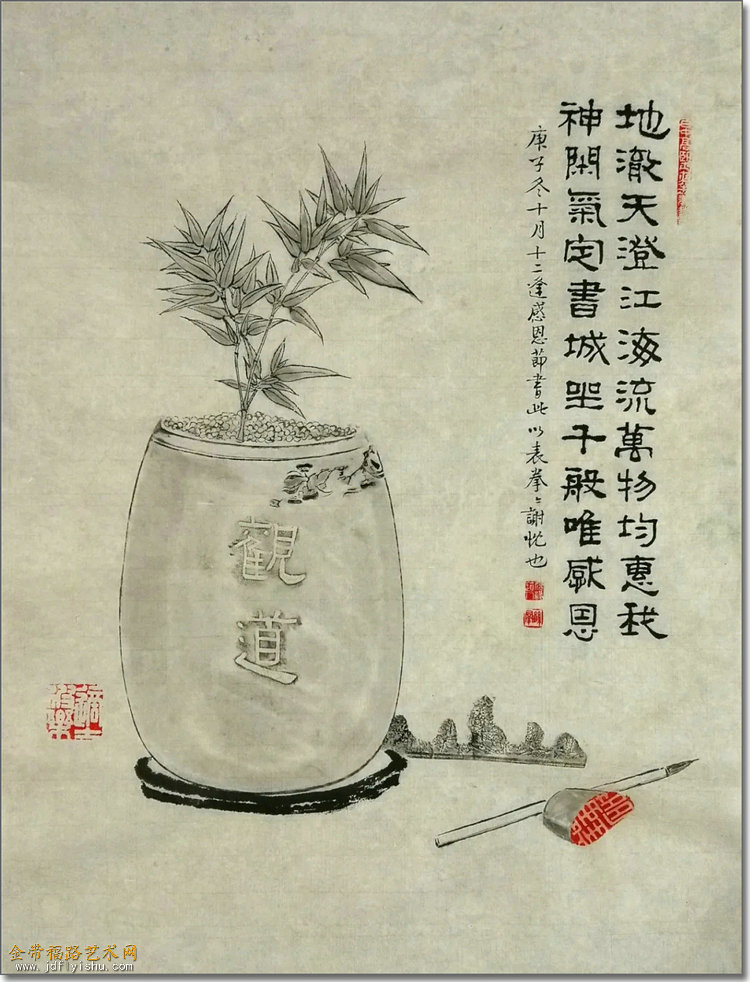 地澈天澄江海流萬物均惠我
神閑氣定書城坐千般唯感恩
庚子冬十月十二逢感恩節書此以表拳〻謝忱也
觀道
金带福路艺术网
www.jdflyishu.com